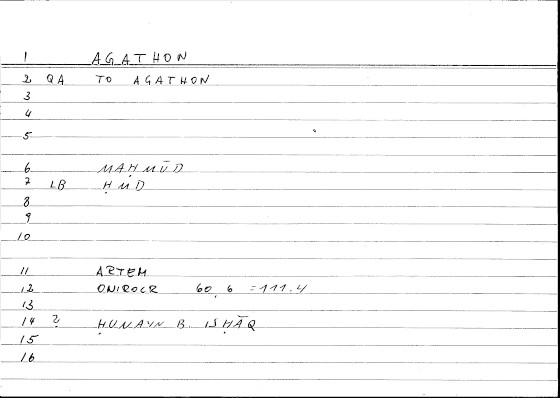 1 AGATHON
2 QA TO AGATHON
3
4
5
6 MAḤMŪD
7 LB ḤMD
8
9
10
11 ARTEM
12 ONIROCR 60,6 =111.4
13
14 ? ḤUNAYN B. ISḤĀQ
15
16